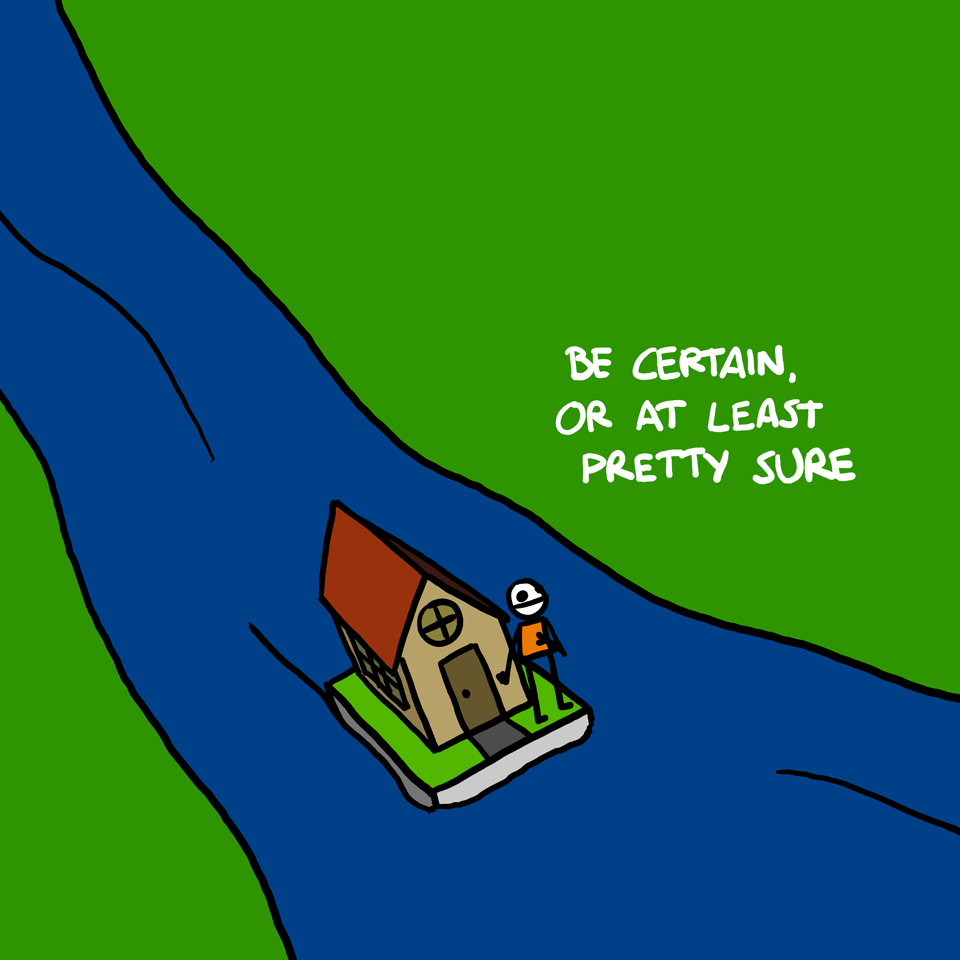 BE CERTAIN,
OR AT LEAST
PRETTY SURE